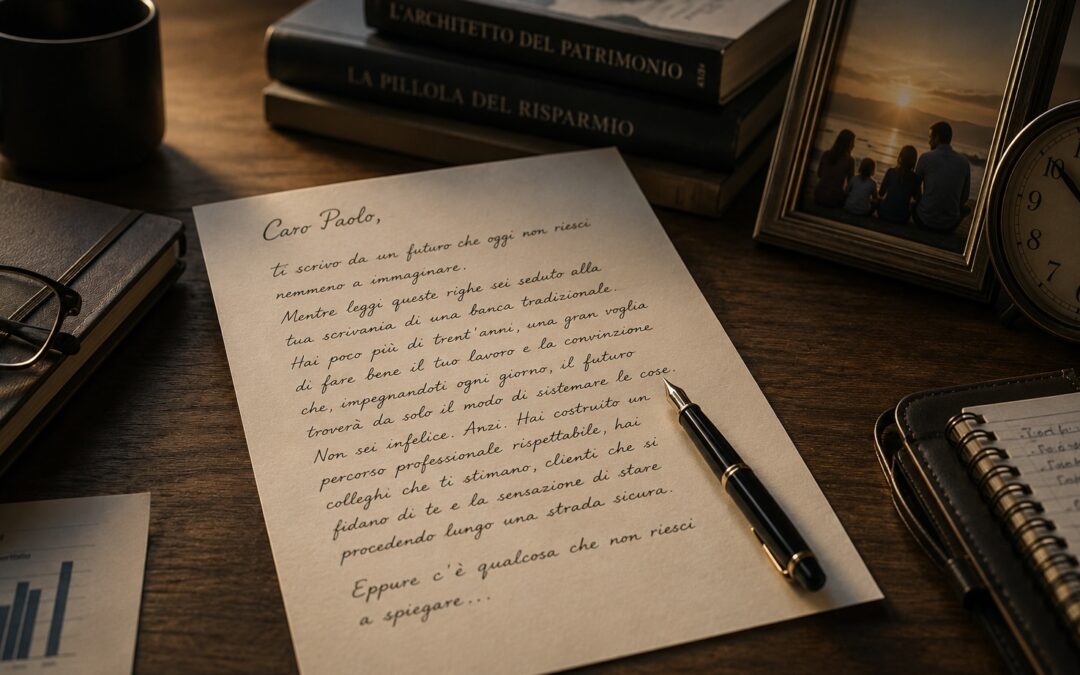 L'ARCHITETTO DEL PATRIMONIO
LA PILLOLA DEL RISPARMIO
Caro Paolo,
ti scrivo da un futuro che oggi non riesci
nemmeno a immaginare.
Mentre leggi queste righe sei seduto alla
tua scrivania di una banca tradizionale.
Hai poco più di trent'anni, una gran voglia
di fare bene il tuo lavoro e la convinzione
che, impegnandoti ogni giorno, il futuro
troverà da solo il modo di sistemare le cose.
Non sei infelice. Anzi. Hai costruito un
percorso professionale rispettabile, hai
colleghi che ti stimano, clienti che si
fidano di te e la sensazione di stare
procedendo lungo una strada sicura.
Eppure c'è qualcosa che non riesci
a spiegare...
10
9
8
7